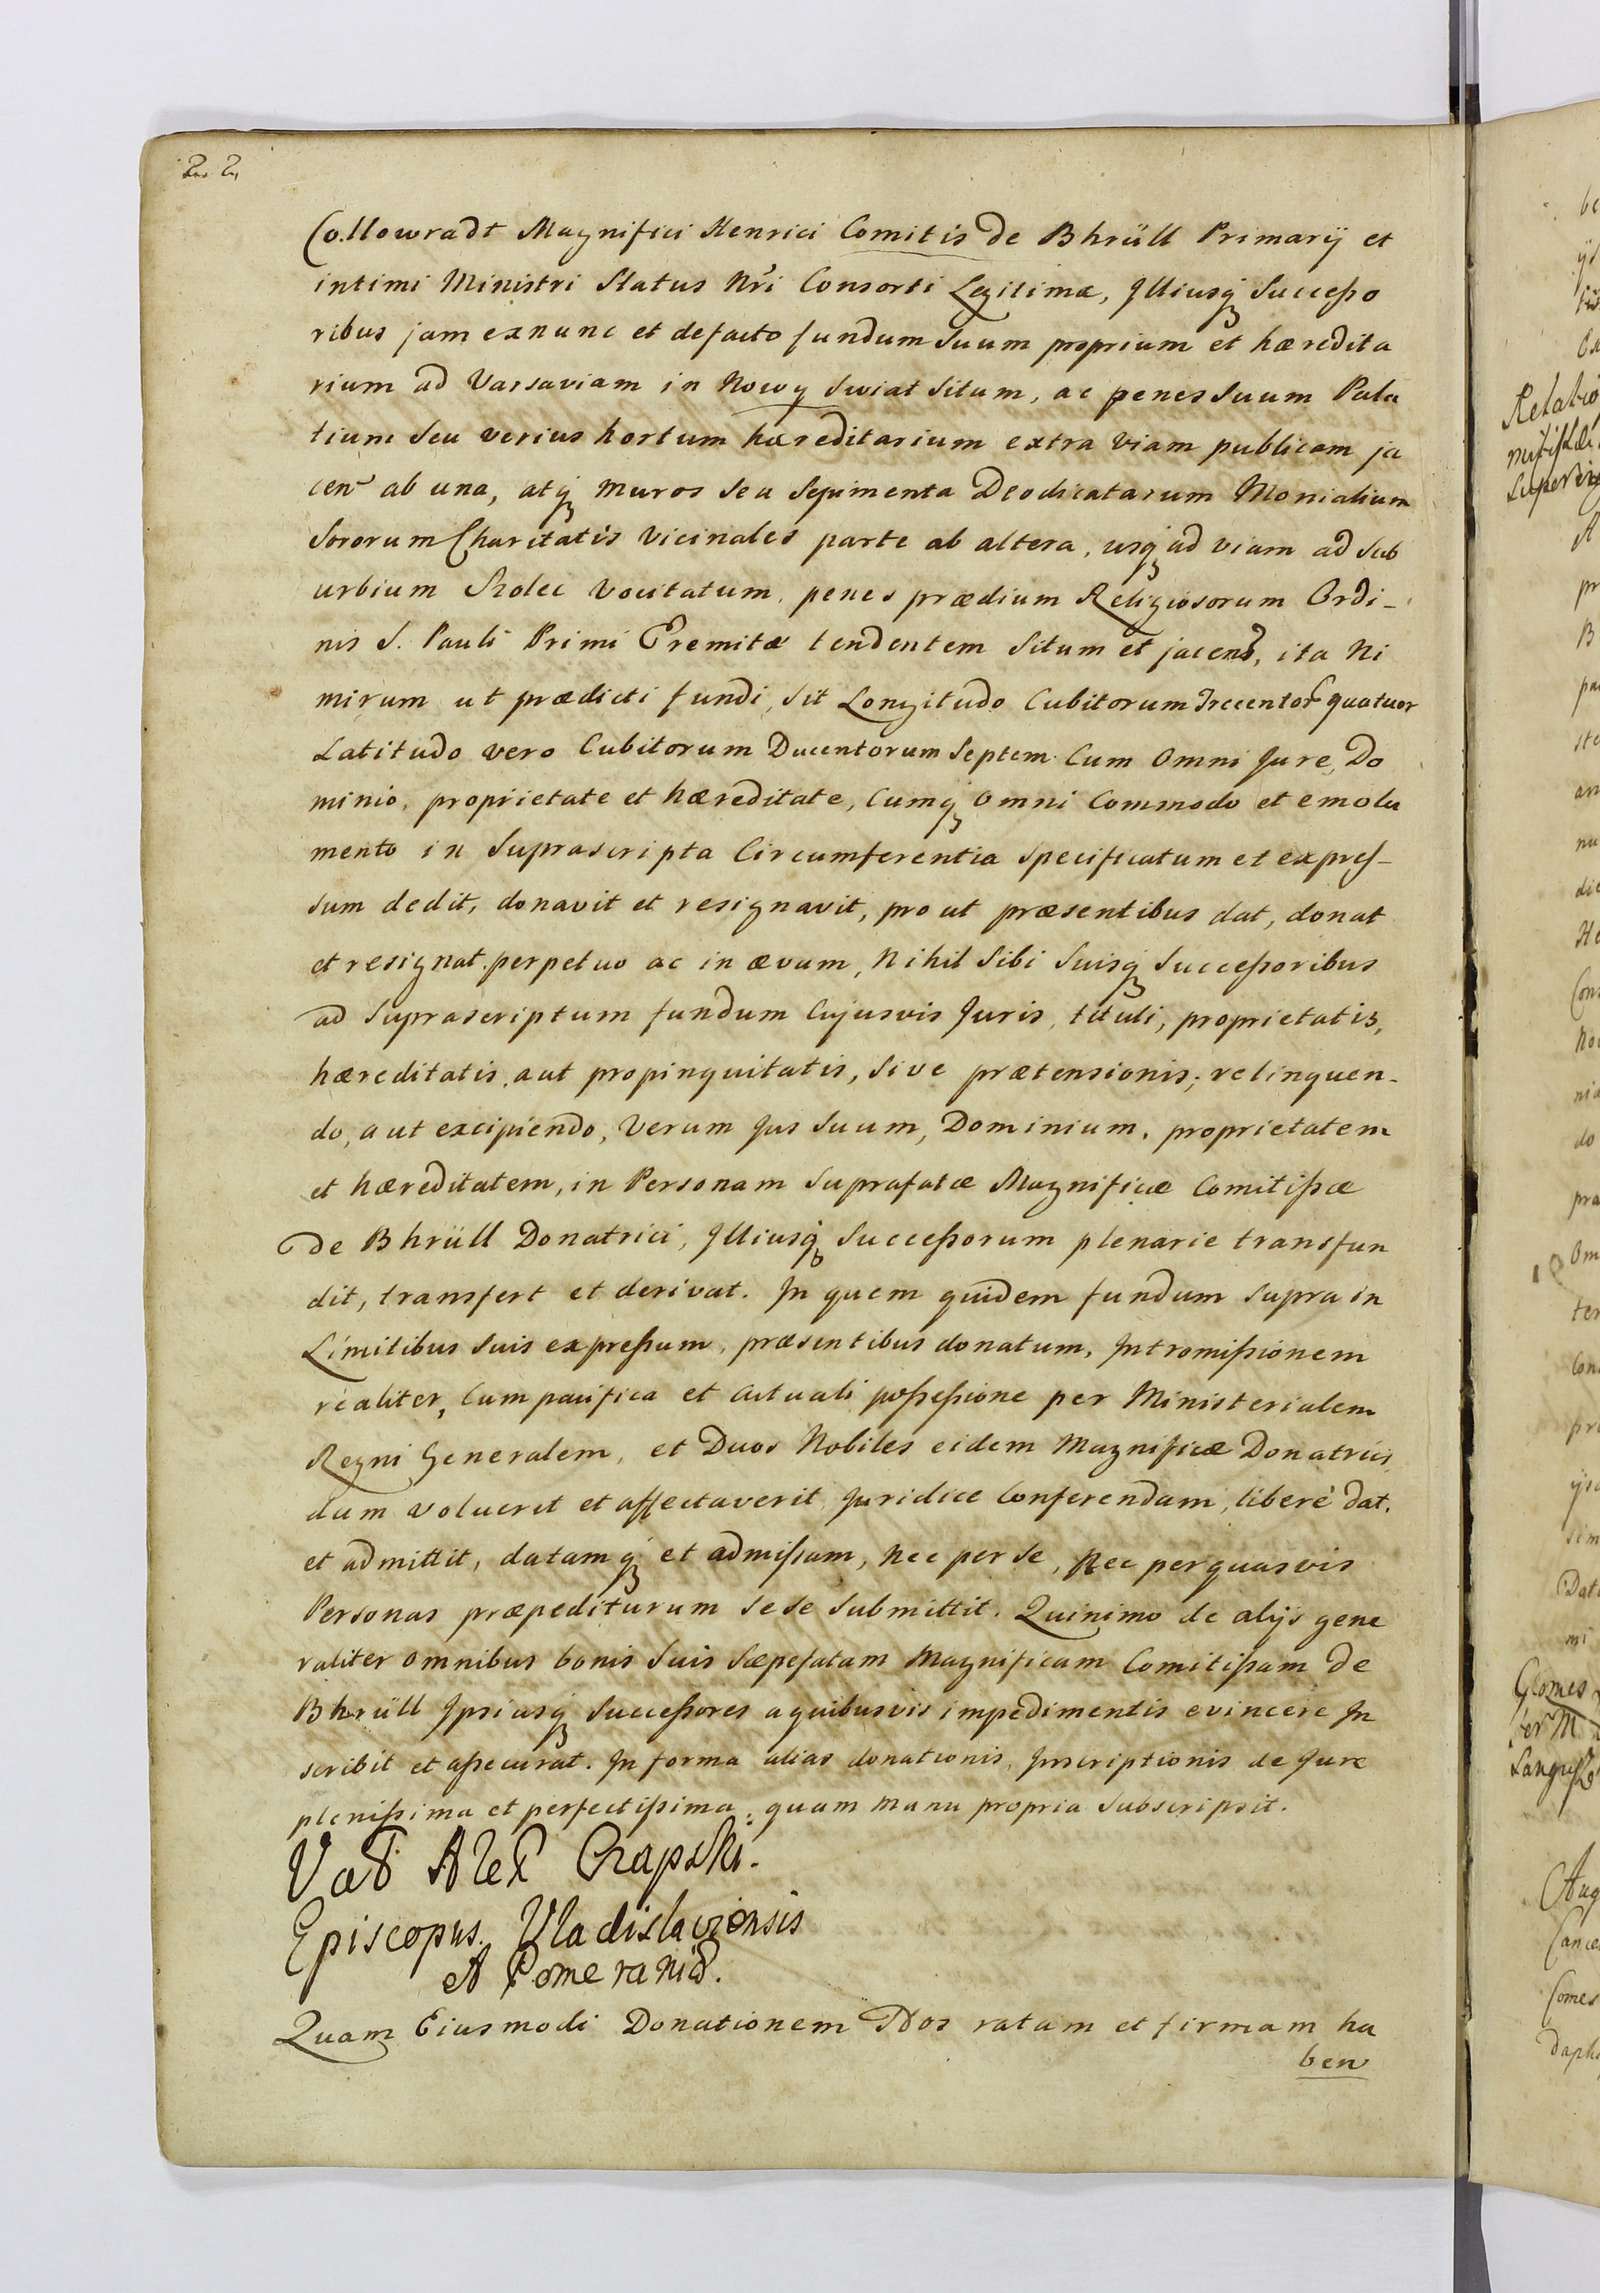 22.
Collowradt Magnifici Henrici Comitis de Bhrüll Primarÿ et
intimi Ministri Status Nri Consorti Legitimæ, Illiusq Succeßo
ribus jam exnunc et defacto fundum Suum proprium et hæredita
rium ad Varsaviam in Nowy Swiat Situm, ac penes Suum Pala
tium Seu verius hortum hæreditarium extra Viam publicam ja
cen ab una, atq muros Seu Sepimenta Deodicatarum Monialium
Sororum Charitatis Vicinales parte ab altera, usq ad viam ad Sub
urbium Solec Vocitatum, penes prædium Religiosorum Ordi-
nis S. Pauli Primi Eremitæ tendentem Situm et jacens, ita Ni
mirum ut prædicti fundi, Sit Longitudo Cubitorum Trecentor quatuor
Latitudo vero Cubitorum Ducentorum Septem Cum Omni Jure, Do
minio, proprietate et hæreditate, Cumq Omni Commodo et emolu
mento in Suprascripta Circumferentia Specificatum et expres-
sum dedit, donavit et resignavit, pro ut præsentibus dat, donat
et resignat. perpetuo ac in ævum, Nihil Sibi Suisq Succeßoribus
ad Suprascriptum fundum Cujusvis Juris, tituli, proprietatis,
hæreditatis, aut propinquitatis, Sive prætensionis; relinquen-
do, aut excipiendo, Verum Jus Suum, Dominium, proprietatem
et hæreditatem, in Personam Suprafatæ Magnificæ Comitißæ
De Bhrüll Donatrici, Illiusq Succeßorum plenarie transfun
dit, transfert et derivat. In quem quidem fundum Supra in
Limitibus Suis expreßum, præsentibus donatum, Intromißionem
realiter, Cum pacifica et actuali poßeßione per Ministerialem
Regni Generalem, et Duos Nobiles eidem Magnificæ Donatrici,
dum voluerit et affectaverit Juridice Conferendam, liberè dat.
et admittit, datamq et admißam, nec per Se, Nec per quasvis
Personas præpediturum Sese Submittit. Quinimo de alÿs gene
raliter omnibus bonis Suis Sæpefatam Magnificam Comitißam De
Bhrüll Ipsiusq Succeßores a quibusvis impedimentis evincere In
scribit et aßecurat. In forma alias donationis, Inscriptionis de Jure
plenißima et perfectißima, quam manu propria Subscripsit.
Czapski.
Episcopus Vladislaviensis
et Pomeraniæ.
Quam Eiusmodi Donationem Nos ratam et firmam ha
ben
Relatio